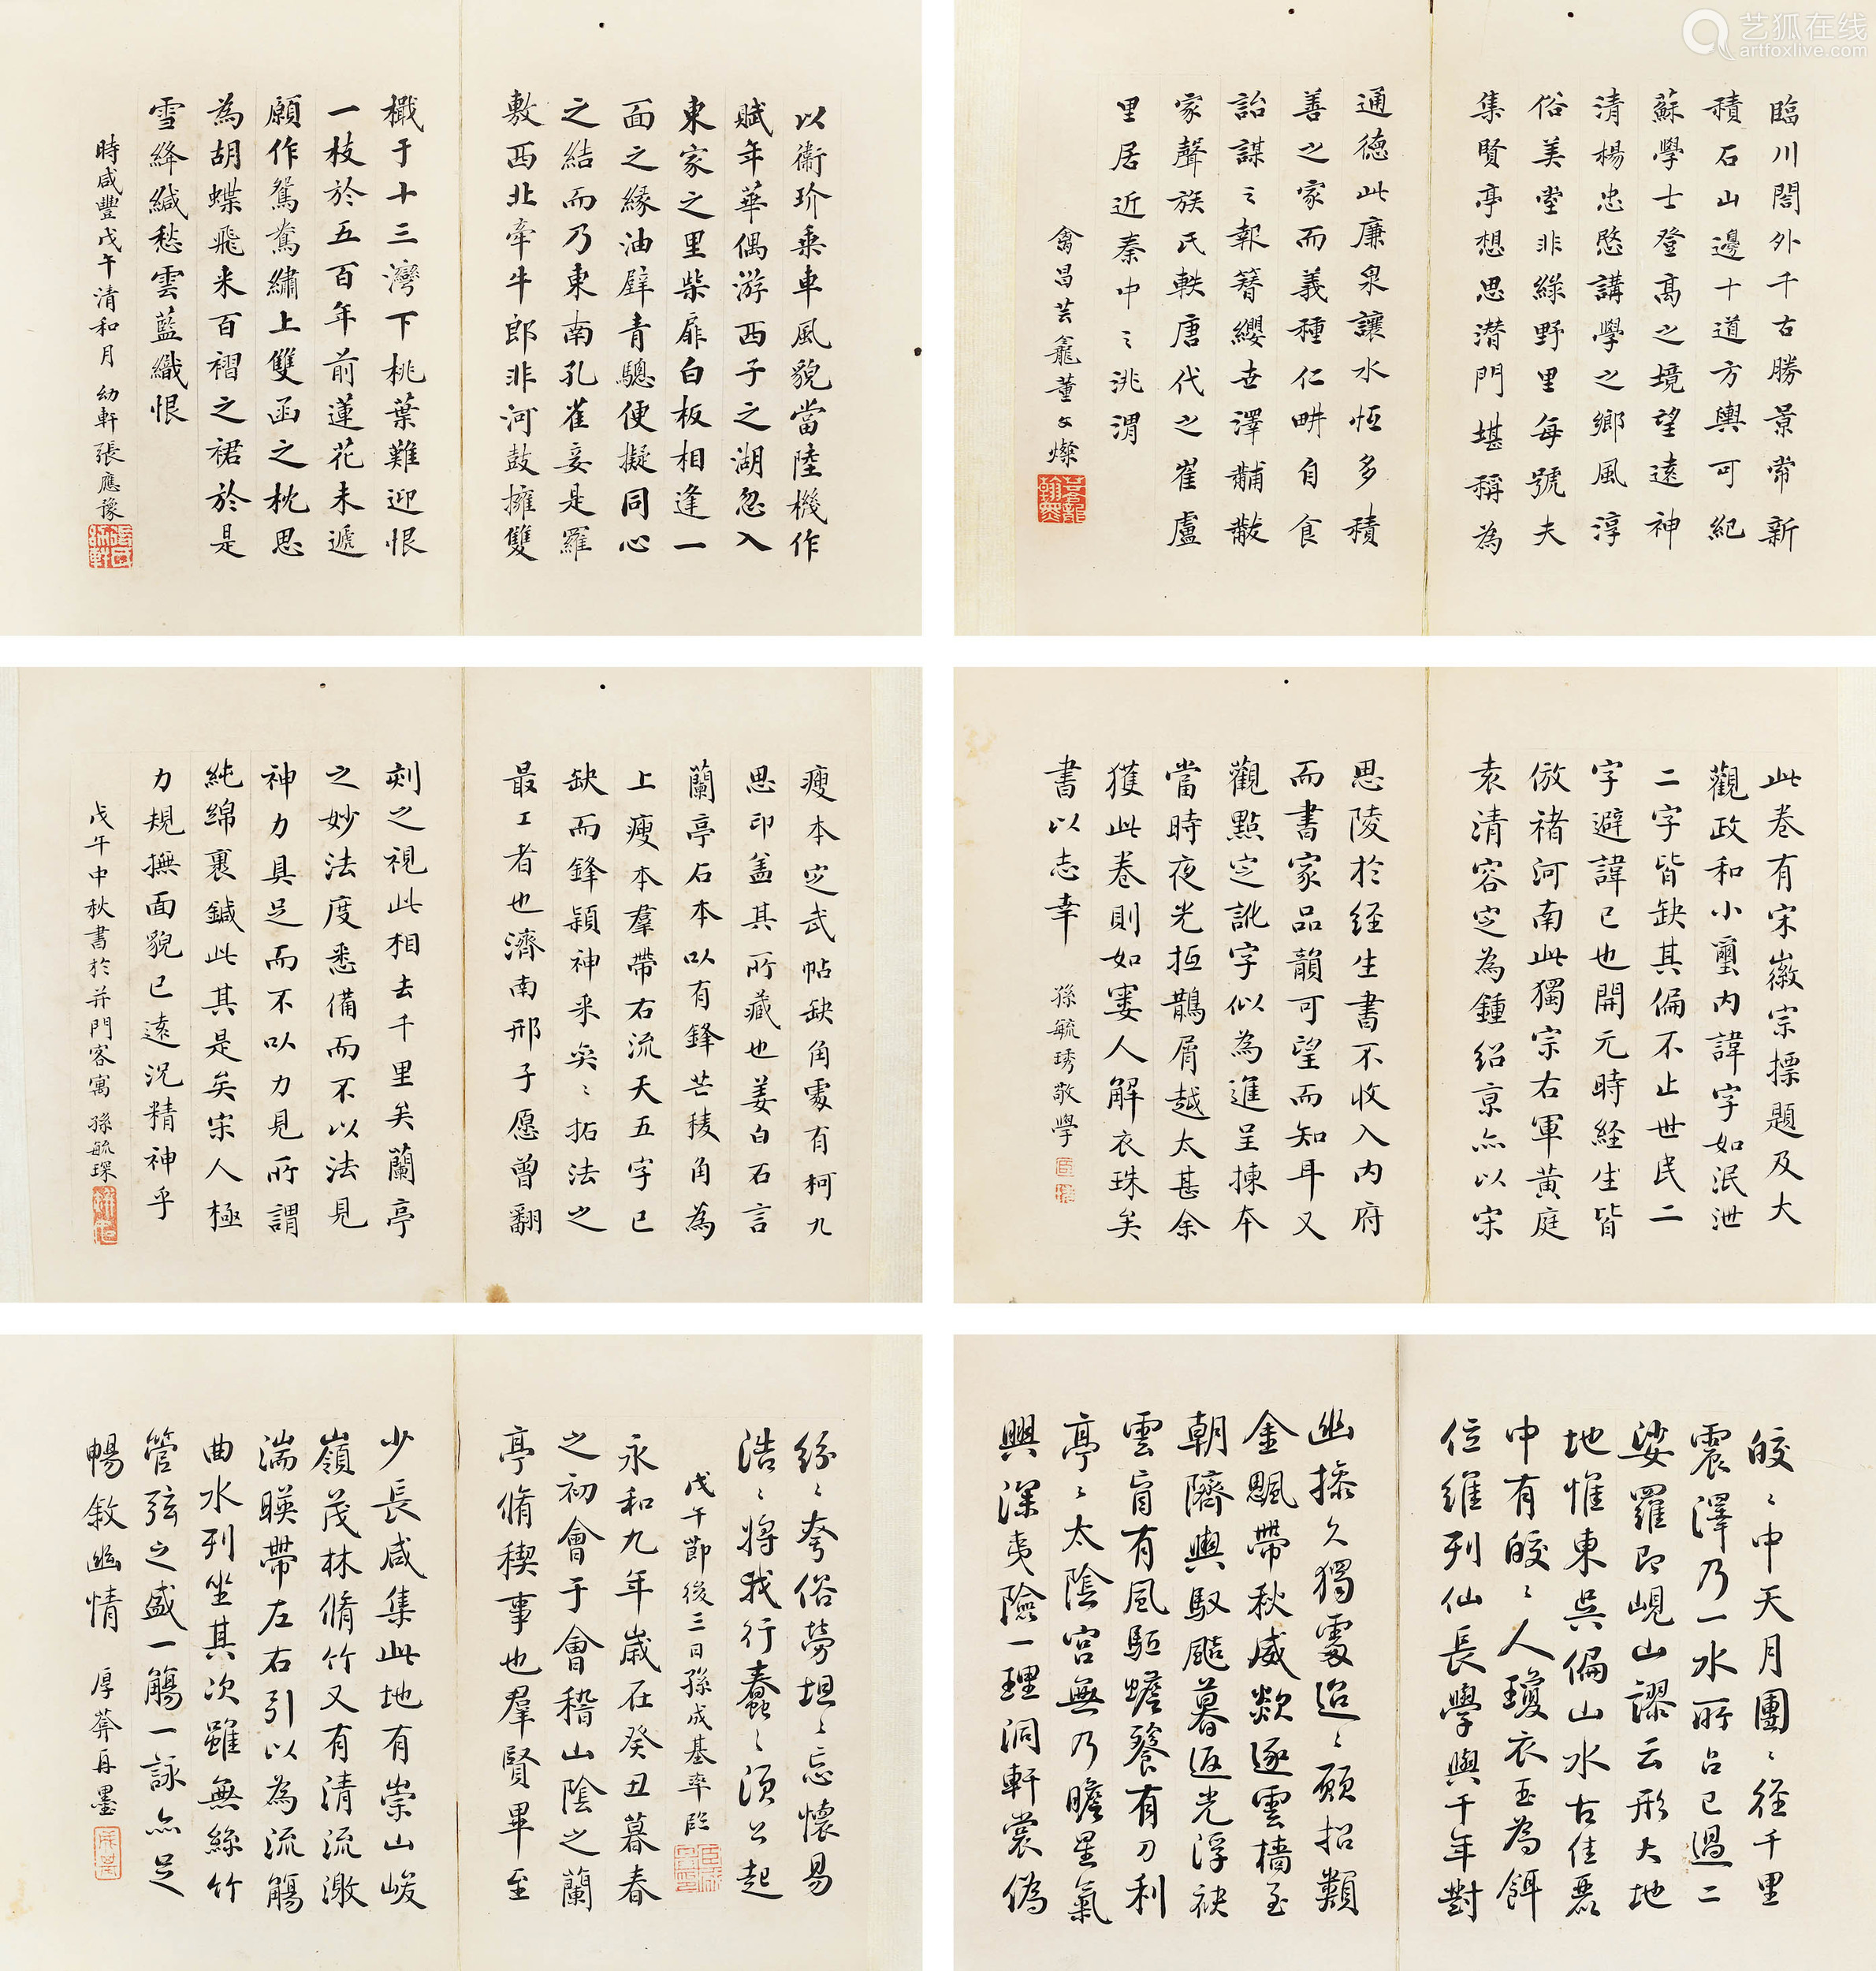 艺狐在线
artfoxlive.com
臨川閤外千古勝景常新
積石山邊十道方輿可紀
蘇學士登高之境望遠神
清楊忠愍講學之鄉風淳
俗美堂非綠野里每號夫
集賢亭想思潛門堪稱為
通德此廉泉讓水恆多積
善之家而義種仁畊自食
詒謀之報簪纓世澤黼黻
家聲族氏軼唐代之崔盧
里居近秦中之洮渭
禽昌芸龕董文燦
以衞玠乗車風貌當陸機作
賦年華偶游西子之湖忽入
東家之里柴扉白板相逢一
面之緣油壁青驄便擬同心
之結而乃東南孔雀妾是羅
敷西北牽牛郎非河鼓擁雙
檝于十三灣下桃葉難迎恨
一枝於五百年前蓮花未遞
願作鴛鴦繡上雙函之枕思
為胡蝶飛来百褶之裙於是
雪絳緘愁雲藍織恨
時咸豐戊午清和月幼軒張應豫
此卷有宋徽宗摽題及大
觀政和小璽内諱字如泯泄
二字皆缺其偏不止世民二
字避諱已也開元時経生皆
倣褚河南此獨宗右軍黄庭
袁清容定為鍾紹京亦以宋
思陵於経生書不收入内府
而書家品韻可望而知耳又
觀點定訛字似為進呈揀本
當時夜光抵鵲屑越太甚余
獲此卷則如窶人解衣珠矣
書以志幸
孫毓琇敬學
瘦本定武帖缺角處有柯九
思印盖其所藏也姜白石言
蘭亭石本以有鋒芒稜角為
上瘦本羣帶右流天五字已
缺而鋒穎神采奕〻拓法之
最工者也濟南邢子愿曾翻
刻之視此相去千里矣蘭亭
之妙法度悉備而不以法見
神力具足而不以力見所謂
純綿裹鍼此其是矣宋人極
力規撫面貌已遠況精神乎
戊午中秋書於并門客寓孫毓琛
皎〻中天月團〻徑千里
震澤乃一水所占已過二
娑羅即峴山謬云形大地
地惟東吳偏山水古佳麗
中有皎〻人瓊衣玉為餌
位維列仙長學與千年對
幽操久獨處迢〻願招類
金飈帶秋威歘逐雲檣至
朝隮輿馭飈暮返光浮袂
雲盲有風駈蟾餮有刀利
亭〻太陰宮無乃瞻星氣
興深夷險一理洞軒裳偽
紛〻夸俗勞坦〻忘懷易
浩〻將我行蠢〻須公起
戊午節後三日孫成基率臨
永和九年歲在癸丑暮春
之初會于會稽山陰之蘭
亭脩稧事也羣賢畢至
少長咸集此地有崇山峻
嶺茂林脩竹又有清流激
湍暎帶左右引以為流觴
曲水列坐其次雖無絲竹
管弦之盛一觴一詠亦足
暢敘幽情
厚葊再墨